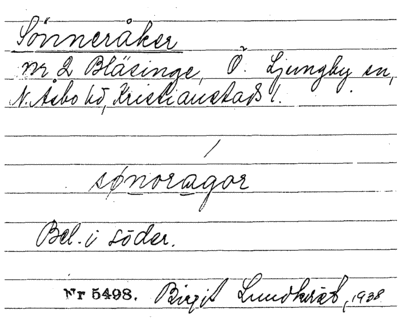 Sönneråker
nr 2 Bläsinge, Ö. Ljungby sn,
N. Åsbo hd, Kristianstads l.
sønoragor
Bel. i söder.
Nr 5498. Birgit Lundkvist, 1938